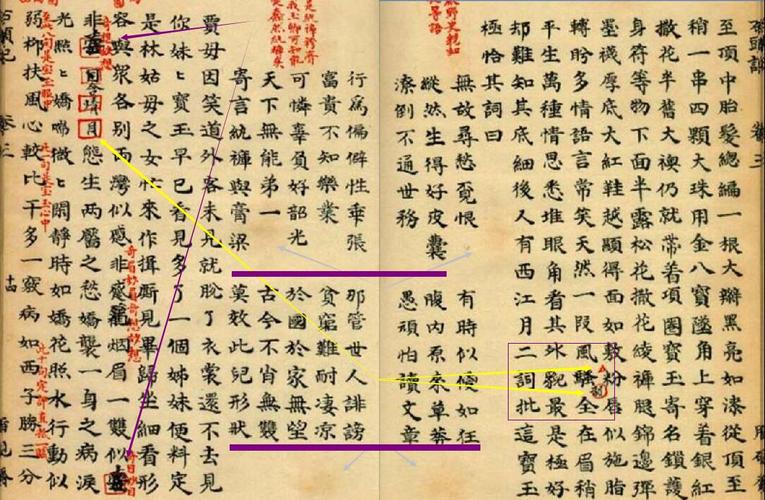 至頂中胎髮總編一根大辮黑亮如漆從頂至
稍一串四顆大珠用金八寶墜角上穿着銀紅
撒花半舊大襖仍就帶着項圈寶玉寄名鎖護
身符等物下面半露松花撒花綾褲腿錦邊彈
墨襪厚底大紅鞋越顯得面如敷粉唇似施脂
轉盻多情語言常笑天然一段風騷全在眉稍
平生萬種情思悉堆眼角看其外貌最是極好
却難知其底細後人有西江月二詞批這寶玉
極恰其詞曰
無故尋愁覓恨 有時似傻如狂
縱然生得好皮囊 腹內原來草莽
潦倒不通世務 愚頑怕讀文章
行為偏僻性乖張 那管世人誹謗
富貴不知樂業 貧窮難耐凄凉
可憐辜負好韶光 於國於家無望
天下無能第一 古今不肖無雙
寄言紈褲與膏梁 莫效此兒形狀
賈母因笑道外客未見就脫了衣裳還不去見
你妹ヒ寶玉早已看見多了一個姊妹便料定
是林姑母之女忙來作揖厮見畢歸坐細看形
容與眾各別兩灣似蹙非蹙籠烟眉一雙似
非目態生兩靨之愁嬌襲一身之病淚
光點ヒ嬌喘微ヒ閑靜時如嬌花照水行動似
弱柳扶風心較比干多一竅病如西子勝三分
奇眉妙眉奇想妙想